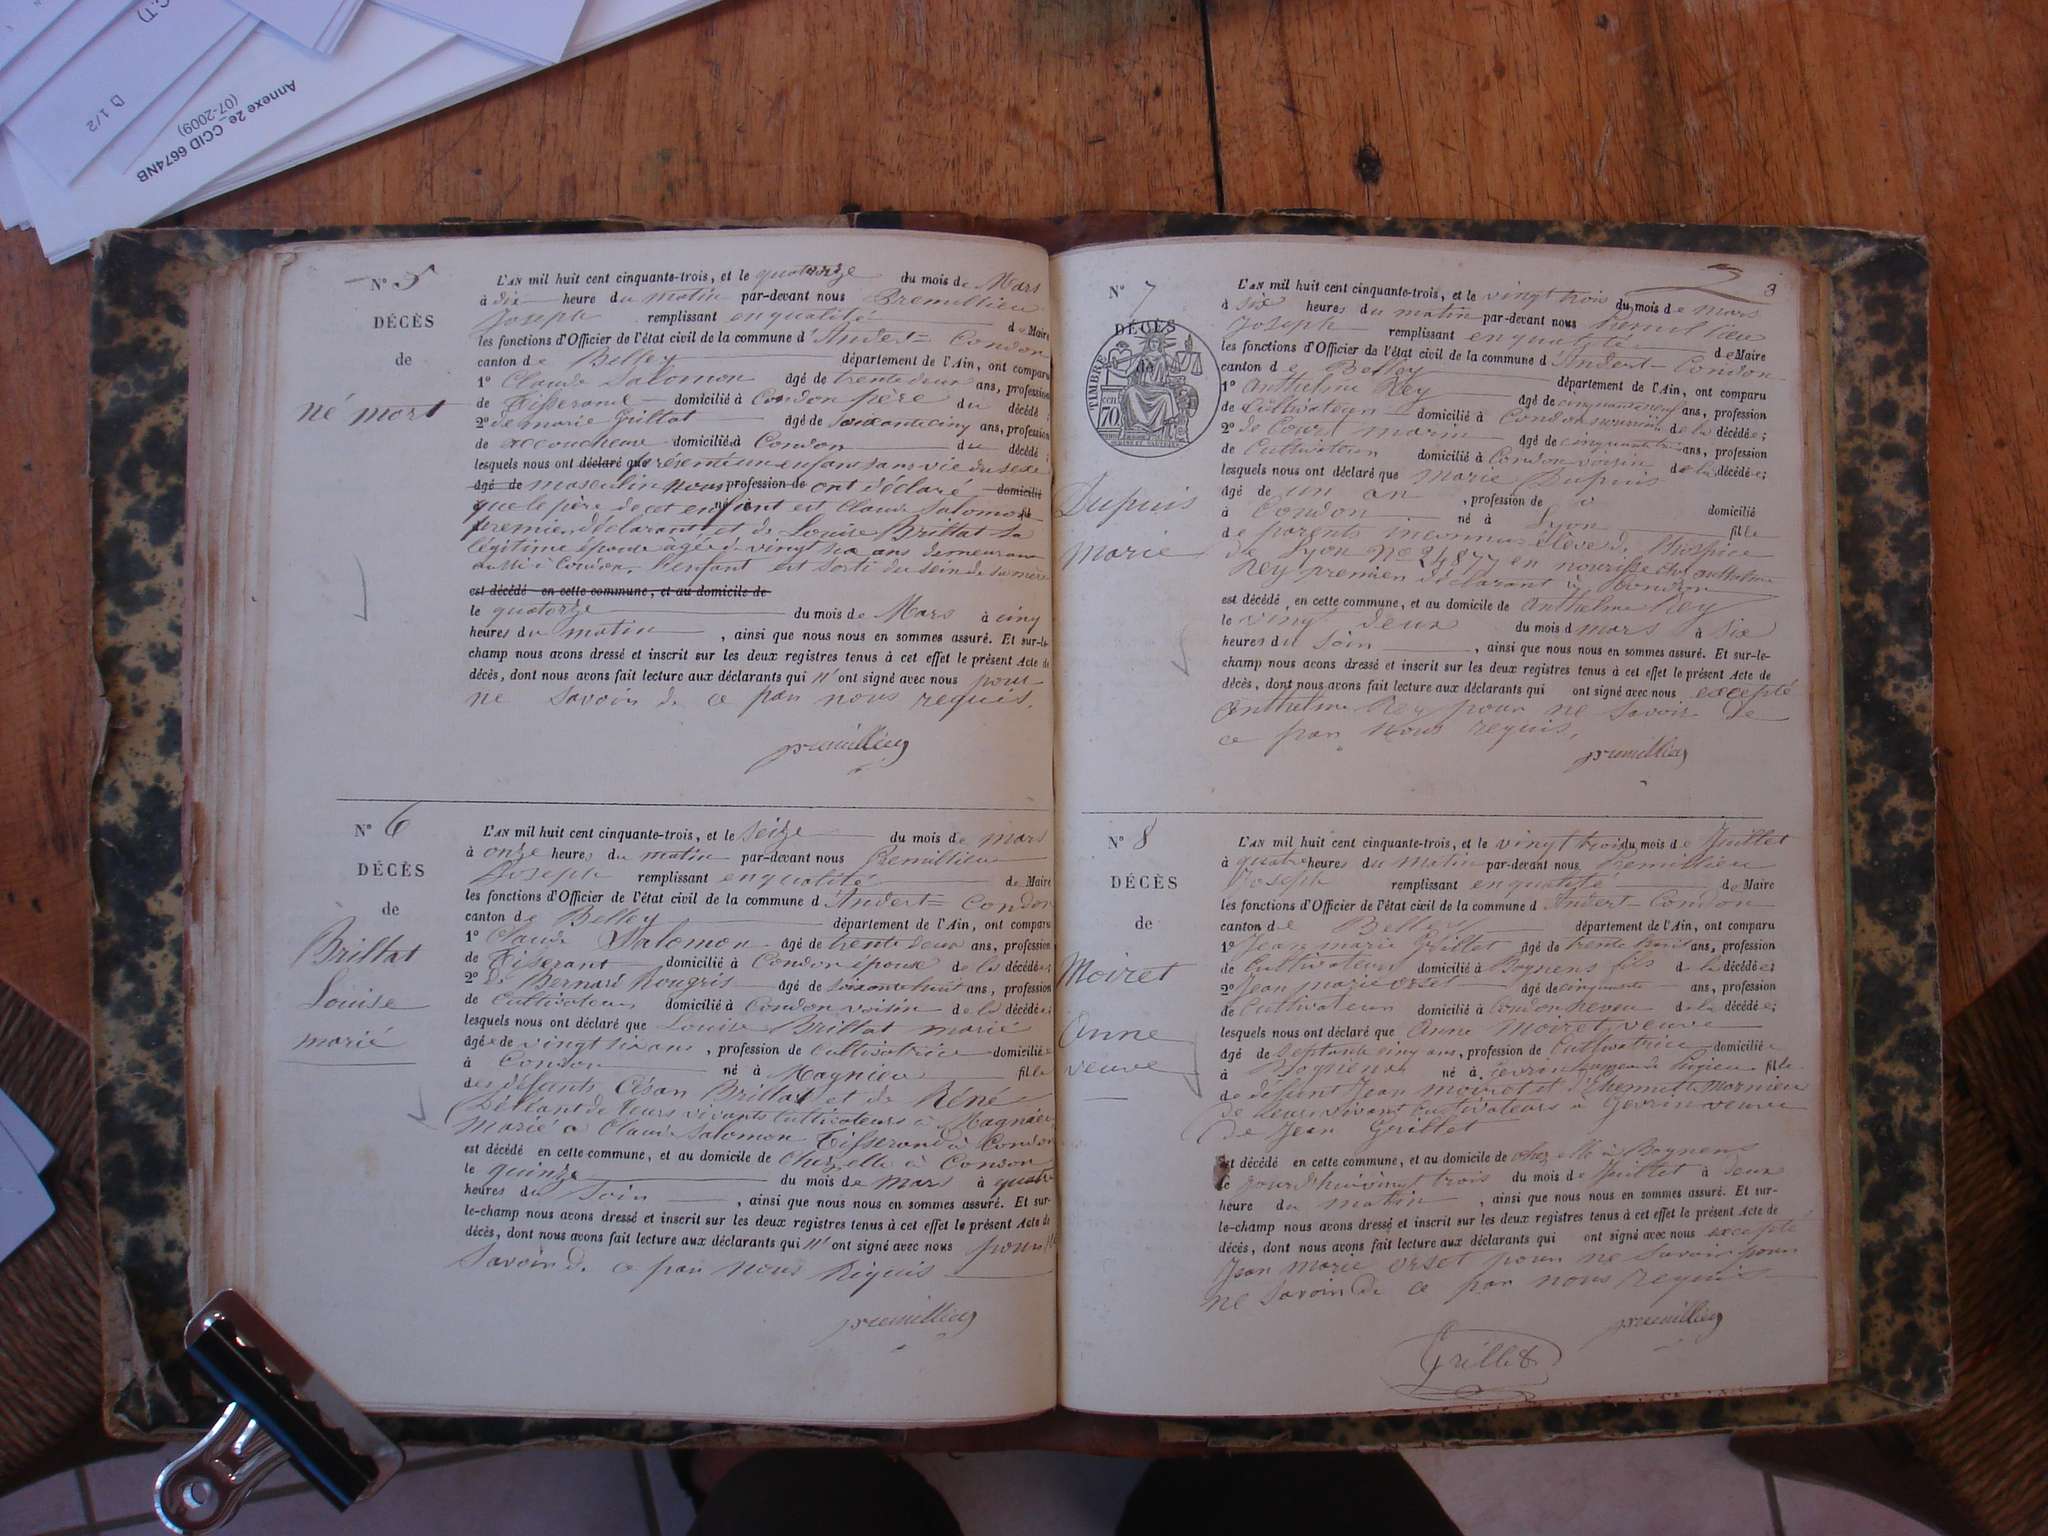 Annexe 2e_CCID 6674NB
(07-2009)
1/2
N° 5
DÉCÈS
de
né mort
L'AN mil huit cent cinquante-trois, et le quatorze du mois de Mars
à dix heure du matin par-devant nous Premillieu
Joseph remplissant en qualité de Maire
les fonctions d'Officier de l'état civil de la commune d'Andert-Condon
canton de Belley département de l'Ain, ont comparu
1° Claude Salomon âgé de trente deux ans, profession
de Tisserand domicilié à Condon père du décédé;
2° de marie Grillat âgé de soixante cinq ans, profession
de accoucheuse domicilié à Condon du décédé;
lesquels nous ont déclaré que présenté un enfant sans vie du sexe
âgé de masculin nous profession de ont déclaré domicilié
que le père de cet enfant né à est Claude Salomon fils
premier déclarant et de Louise Brillat sa
légitime épouse âgée de vingt six ans demeurant
aussi à Condon. l'enfant est sorti du sein de sa mère
est décédé en cette commune, et au domicile de
le quatorze du mois de Mars à cinq
heures du matin, ainsi que nous nous en sommes assuré. Et sur-le-
champ nous avons dressé et inscrit sur les deux registres tenus à cet effet le présent Acte de
décès, dont nous avons fait lecture aux déclarants qui n'ont signé avec nous pour
ne savoir de ce par nous requis.
premillieu
N° 6
DÉCÈS
de
Brillat
Louise
marié
L'AN mil huit cent cinquante-trois, et le seize du mois de mars
à onze heures du matin par-devant nous Premillieu
Joseph remplissant en qualité de Maire
les fonctions d'Officier de l'état civil de la commune d'Andert-Condon
canton de Belley département de l'Ain, ont comparu
1° Claude Salomon âgé de trente deux ans, profession
de Tisserant domicilié à Condon époux de la décédée;
2° de Bernard Rougris âgé de soixante huit ans, profession
de Cultivateur domicilié à Condon voisin de la décédée;
lesquels nous ont déclaré que Louise Brillat marié
âgée de vingt six ans, profession de cultivatrice domiciliée
à Condon né à Magnieu fille
des défunts César Brillat et de Réné
de leurs vivants cultivateurs à Magnieu
marié à Claude Salomon Tisserand à Condon
est décédé en cette commune, et au domicile de chez elle à Condon
le quinze du mois de mars à quatre
heures du soir, ainsi que nous nous en sommes assuré. Et sur-
le-champ nous avons dressé et inscrit sur les deux registres tenus à cet effet le présent Acte de
décès, dont nous avons fait lecture aux déclarants qui n'ont signé avec nous pour ne
savoir de ce par nous Riquis
premillieu
3
N° 7
DÉCÈS
de
TIMBRE
70 cen
Dupuis
marie
L'AN mil huit cent cinquante-trois, et le vingt trois du mois de mars
à six heures du matin par-devant nous Premillieu
Joseph remplissant en qualité de Maire
les fonctions d'Officier de l'état civil de la commune d'Andert-Condon
canton de Belley département de l'Ain, ont comparu
1° Anthelme Rey âgé de cinquante neuf ans, profession
de Cultivateur domicilié à Condon nourricier de la décédée;
2° de Court marin âgé de cinquante ans, profession
de Cultivateur domicilié à Condon voisin de la décédée;
lesquels nous ont déclaré que marie Dupuis
âgé de un an, profession de domicilié
à Condon né à Lyon fille
de parents inconnus élève de l'hospice
de Lyon N° 24877 en nourisse chez anthelme
Rey premier déclarant à Condon
est décédé, en cette commune, et au domicile de anthelme Rey
le vingt deux du mois d mars à six
heures du soir, ainsi que nous nous en sommes assuré. Et sur-le-
champ nous avons dressé et inscrit sur les deux registres tenus à cet effet le présent Acte de
décès, dont nous avons fait lecture aux déclarants qui ont signé avec nous excepté
anthelme Rey pour ne savoir de
ce par nous requis.
premillieu
N° 8
DÉCÈS
de
Moiret
Anne
veuve
L'AN mil huit cent cinquante-trois, et le vingt trois du mois de Juillet
à quatre heures du matin par-devant nous Premillieu
Joseph remplissant en qualité de Maire
les fonctions d'Officier de l'état civil de la commune d'Andert-Condon
canton de Belley département de l'Ain, ont comparu
1° Jean marie Grillet âgé de trente huit ans, profession
de Cultivateur domicilié à Bognens fils de la décédée;
2° Jean marie Orset âgé de cinquante ans, profession
de Cultivateur domicilié à Condon neveu de la décédée;
lesquels nous ont déclaré que Anne Moiret veuve
âgé de septante cinq ans, profession de Cultivatrice domiciliée
à Bognens né à Gevrin fille
de défunt Jean moiret et d' Mornieu
de leurs vivant Cultivateurs à Gevrin veuve
de Jean Grillet
est décédé en cette commune, et au domicile de chez elle à Bognens
le jourd'hui vingt trois du mois de Juillet à deux
heure du matin, ainsi que nous nous en sommes assuré. Et sur-
le-champ nous avons dressé et inscrit sur les deux registres tenus à cet effet le présent Acte de
décès, dont nous avons fait lecture aux déclarants qui ont signé avec nous excepté
Jean Marie Orset pour ne savoir pour
ne savoir de ce par nous requis
premillieu
Grillet